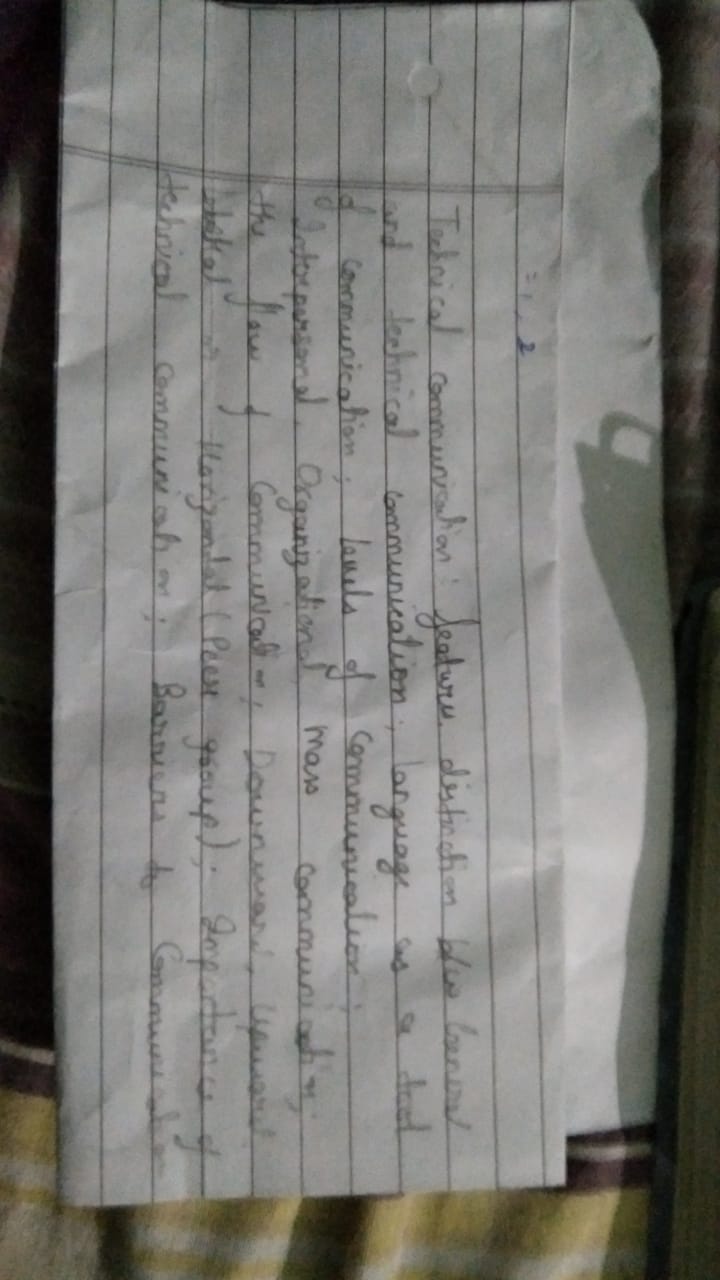 2
Technical communication: features, distinction b/w General
and technical communication; language as a tool
of communication; levels of communication;
Interpersonal, Organizational, mass communication;
the flow of Communication, Downward, Upward
or Horizontal (Peer group); Importance of
technical communication; Barriers to Communication